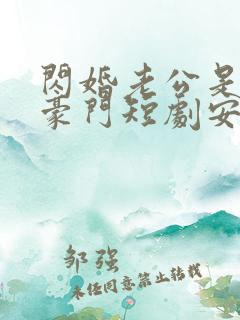 閃婚老公是
豪門短劇安
邹强
未经同意禁止转载